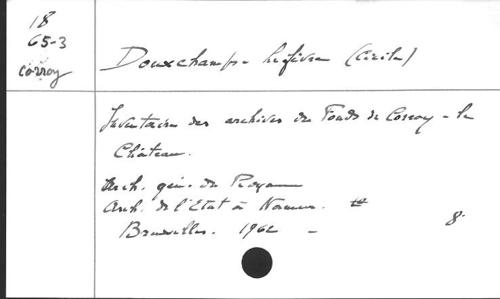 18
65-3
Corroy
Douxchamps-Lefèvre (Cécile)
Inventaire des archives du Fonds de Corroy-le
Château.
Arch. gén. du Royaume
Arch. de l'Etat à Namur.
Bruxelles. 1962 - 8°